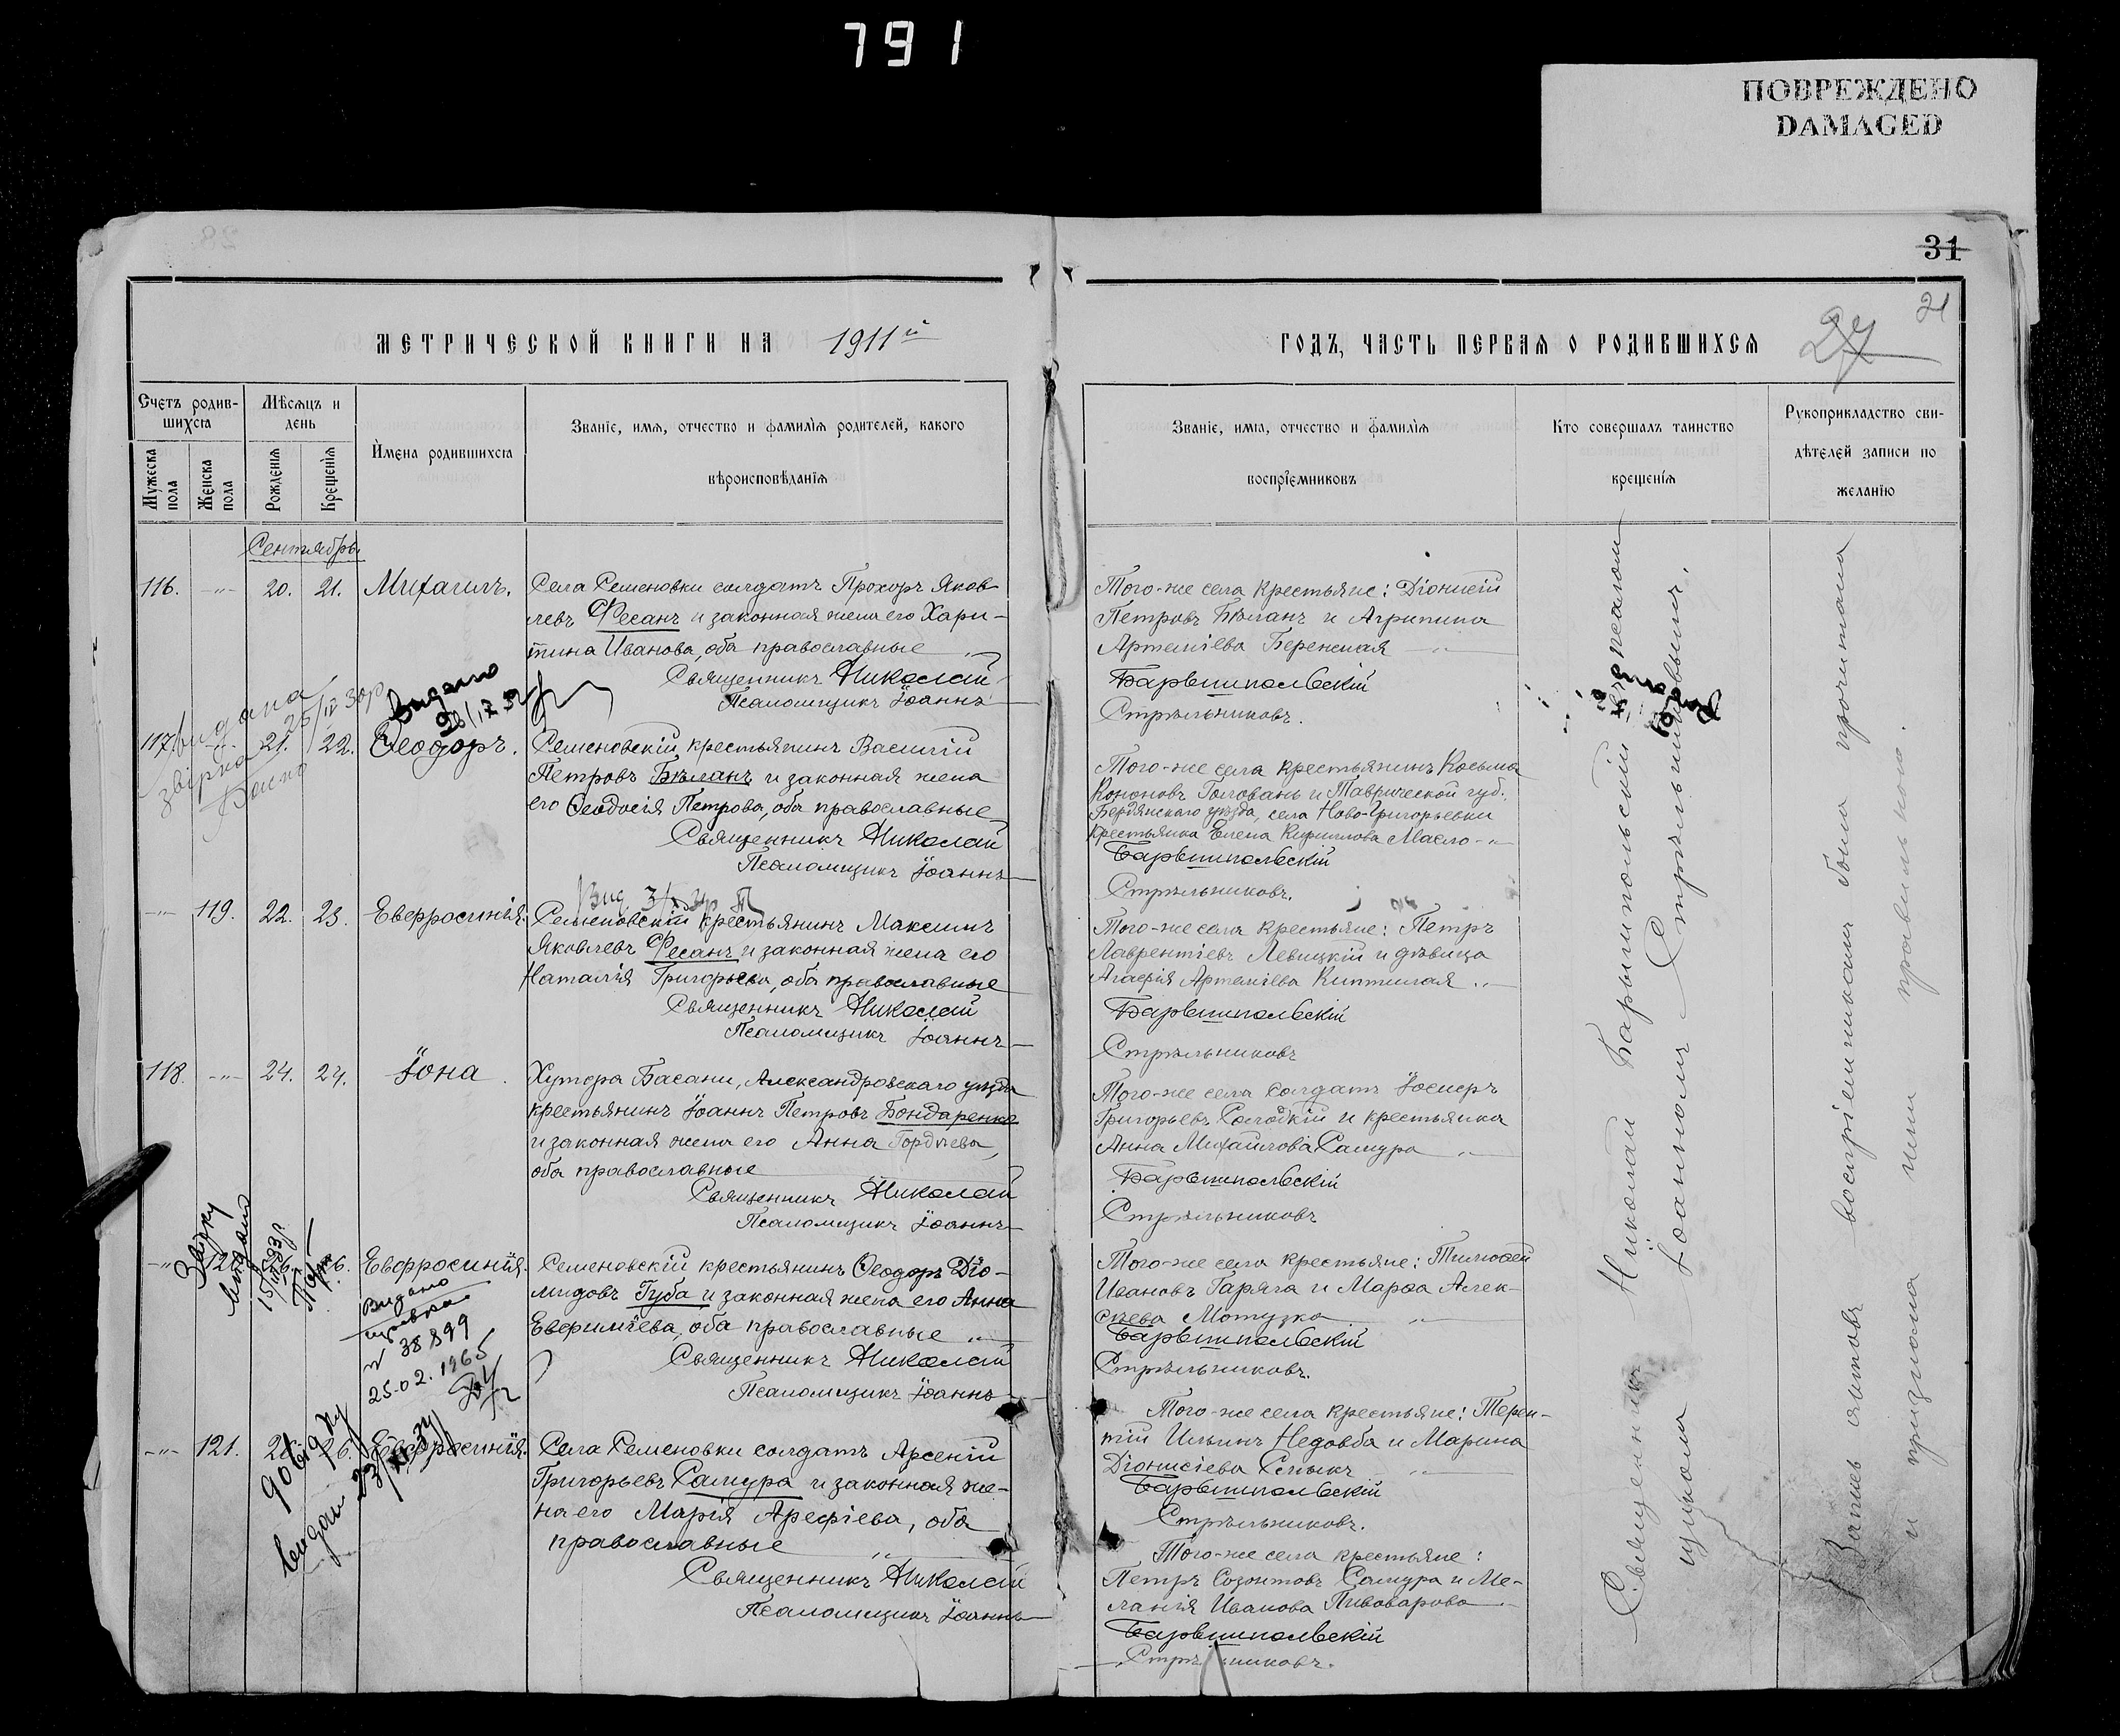 791
ПОВРЕЖДЕНО
DAMAGED
31
21
МЕТРИЧЕСКОЙ КНИГИ НА 1911й
ГОДЪ, ЧАСТЬ ПЕРВАЯ О РОДИВШИХСЯ
27
Счетъ родив-
шихся
Мужеска пола
Женска пола
Мѣсяцъ и
день
Рожденія
Крещенія
Имена родившихся
Званіе, имя, отчество и фамилія родителей, какого
вѣроисповѣданія
Званіе, имя, отчество и фамилія
воспріемниковъ
Кто совершалъ таинство
крещенія
Рукоприкладство сви-
дѣтелей записи по
желанію
Сентябрь
116. -"- 20. 21. Михаилъ.
Села Семеновки солдатъ Прохоръ Яков-
левъ Фесанъ и законная жена его Хари-
тина Иванова, оба православные
Священникъ Николай
Псаломщикъ Іоаннъ
Того-же села крестьяне: Діонисій
Петровъ Бѣланъ и Агрипина
Артеміева Бережная
Барышпольскій
Стрѣльниковъ.
видана
звірка
Видано
117. -"- 21. 22. Ѳеодоръ.
Семеновскій крестьянинъ Василій
Петровъ Бѣланъ и законная жена
его Ѳеодосія Петрова, оба православные
Священникъ Николай
Псаломщикъ Іоаннъ
Того-же села крестьянинъ Косьма
Кононовъ Головань и Таврической губ.,
Бердянскаго уѣзда, села Ново-Григорьевки
крестьянка Елена Кириллова Масло
Барышпольскій
Стрѣльниковъ.
-"- 119. 22. 23. Евфросинія.
Семеновскій крестьянинъ Максимъ
Яковлевъ Фесанъ и законная жена его
Наталія Григорьева, оба православные
Священникъ Николай
Псаломщикъ Іоаннъ
Того-же села крестьяне: Петръ
Лаврентіевъ Левицкій и дѣвица
Агафія Артеміева
Барышпольскій
Стрѣльниковъ
118. -"- 24. 24. Іона.
Хутора Басани, Александровскаго уѣзда
крестьянинъ Іоаннъ Петровъ Бондаренко
и законная жена его Анна Гордѣева,
оба православные
Священникъ Николай
Псаломщикъ Іоаннъ
Того-же села солдатъ Іосифъ
Григорьевъ Солодкій и крестьянка
Анна Михайлова Самура
Барышпольскій
Стрѣльниковъ
-"- 26. Евфросинія.
Семеновскій крестьянинъ Ѳеодоръ Діо-
мидовъ Губа и законная жена его Анна
Евфиміева, оба православные
Священникъ Николай
Псаломщикъ Іоаннъ
Того-же села крестьяне: Тимоѳей
Ивановъ Гаряга и Марѳа Алек-
сѣева Мотузка
Барышпольскій
Стрѣльниковъ.
Видано
справка
№ 38899
25-02.1965
-"- 121. 26. Евфросинія.
Села Семеновки солдатъ Арсеній
Григорьевъ Самура и законная же-
на его Марія Арефіева, оба
православные
Священникъ Николай
Псаломщикъ Іоаннъ
Того-же села крестьяне: Терен-
тій Ильинъ Недовба и Марина
Діонисіева
Барышпольскій
Стрѣльниковъ.
Того-же села крестьяне:
Петръ Созонтовъ Самура и Ме-
ланія Иванова Пивоварова
Барышпольскій
Священникъ Николай Барышпольскій съ псалом-
щикомъ Іоанномъ Стрѣльниковымъ.
Запись актовъ воспріемниками была прочитана
и признана ими правильною.